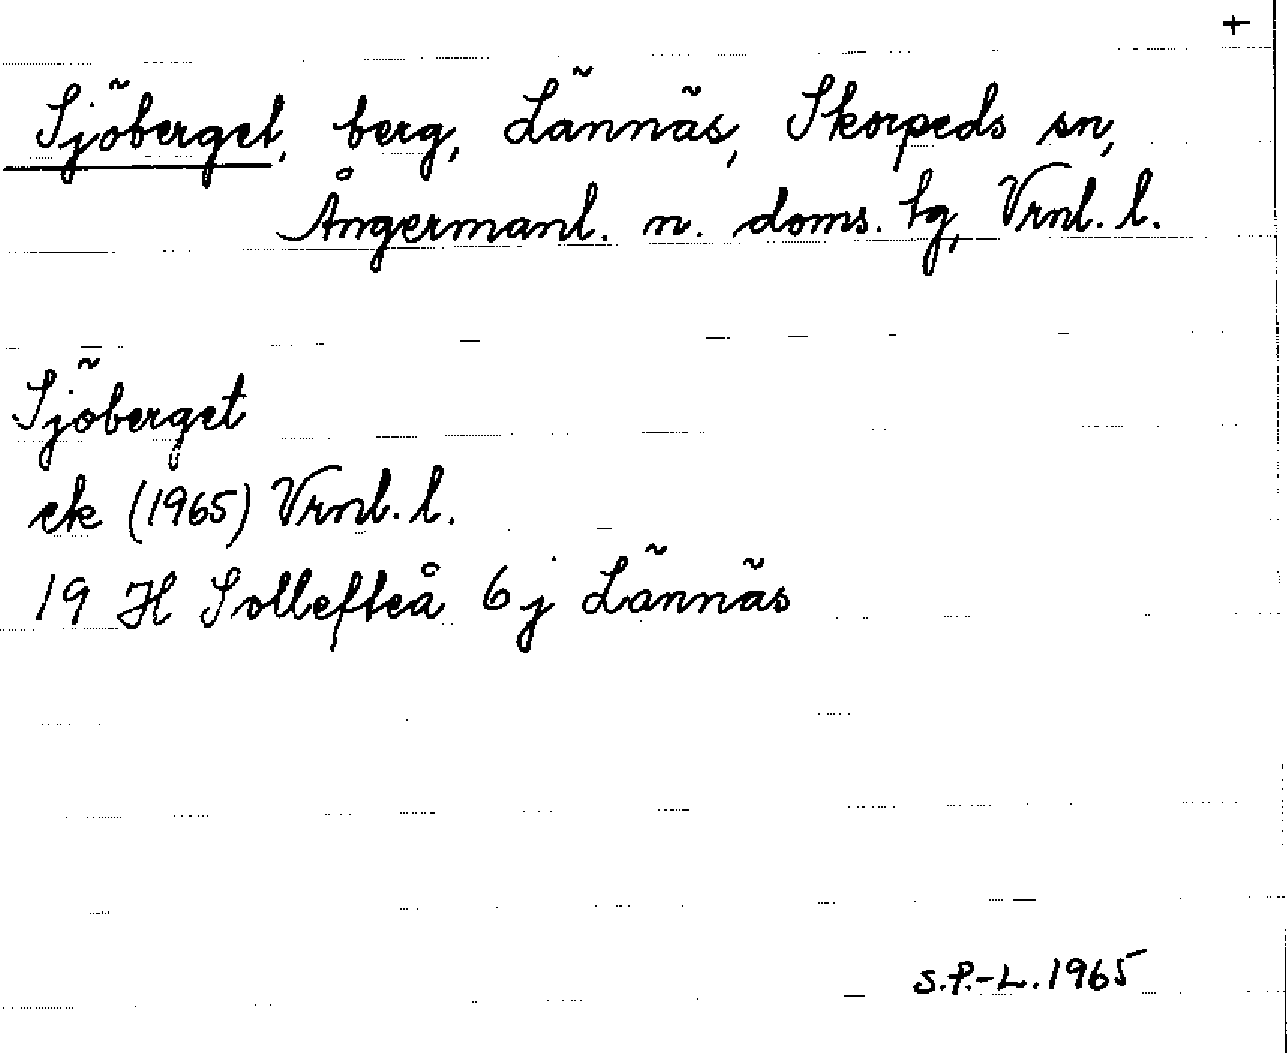 +
Sjöberget, berg, Lännäs, Skorpeds sn,
Ångermanl. n. doms. tg, Vrnl. l.
Sjöberget
ek (1965) Vrnl. l.
19 H Sollefteå 6j Lännäs
S.P.-L. 1965